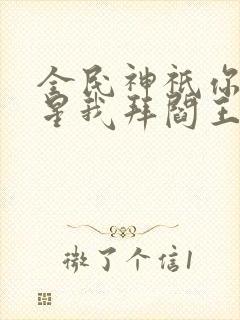 全民神祇你
星我拜阎王
微了个信1